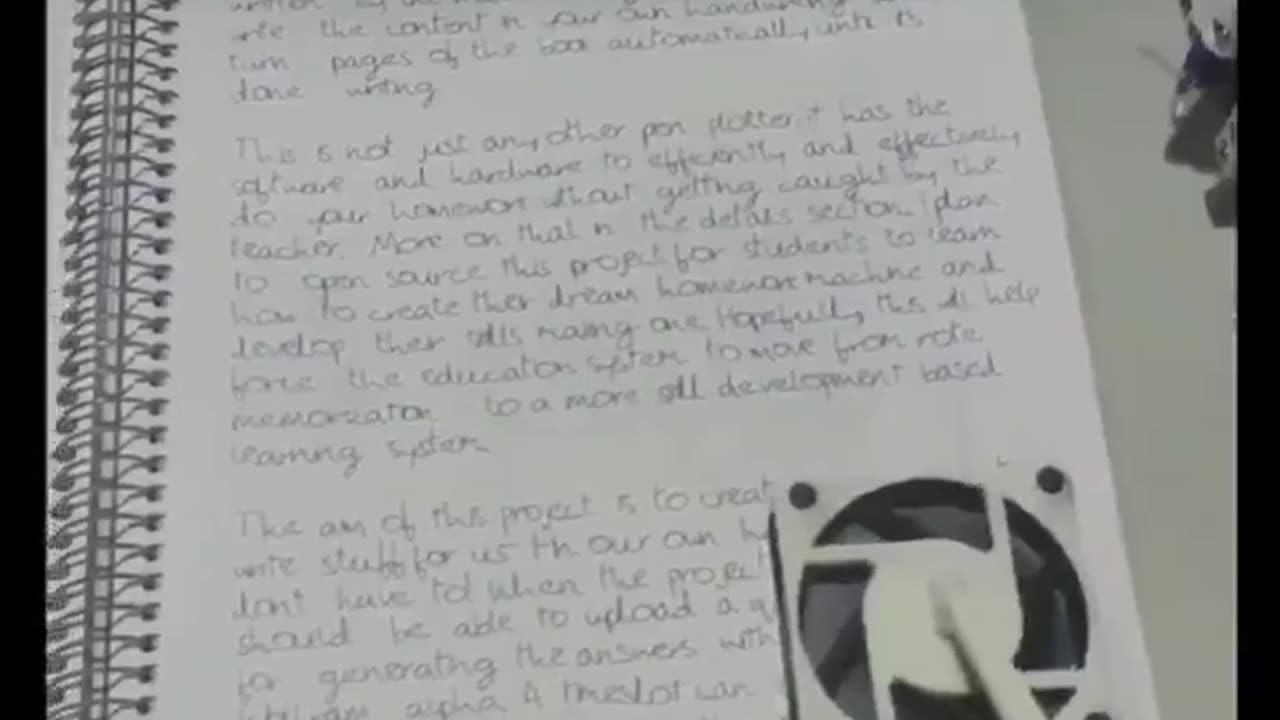 the content in your own
turn pages of the book automatically until its
done writing
This is not just any other pen plotter it has the
software and hardware to efficiently and effectively
do your homework without getting caught by the
teacher. More on that in the details section. I plan
to open source this project for students to learn
how to create their dream homework machine and
develop their skills making one. Hopefully, this will help
force the education system to move from rote
memorization to a more skill development based
learning system.
The aim of this project is to creat
write stuff for us in our own h
don't have to! When the project
should be able to upload a q
for generating the answers with
alpha. A timeslot can